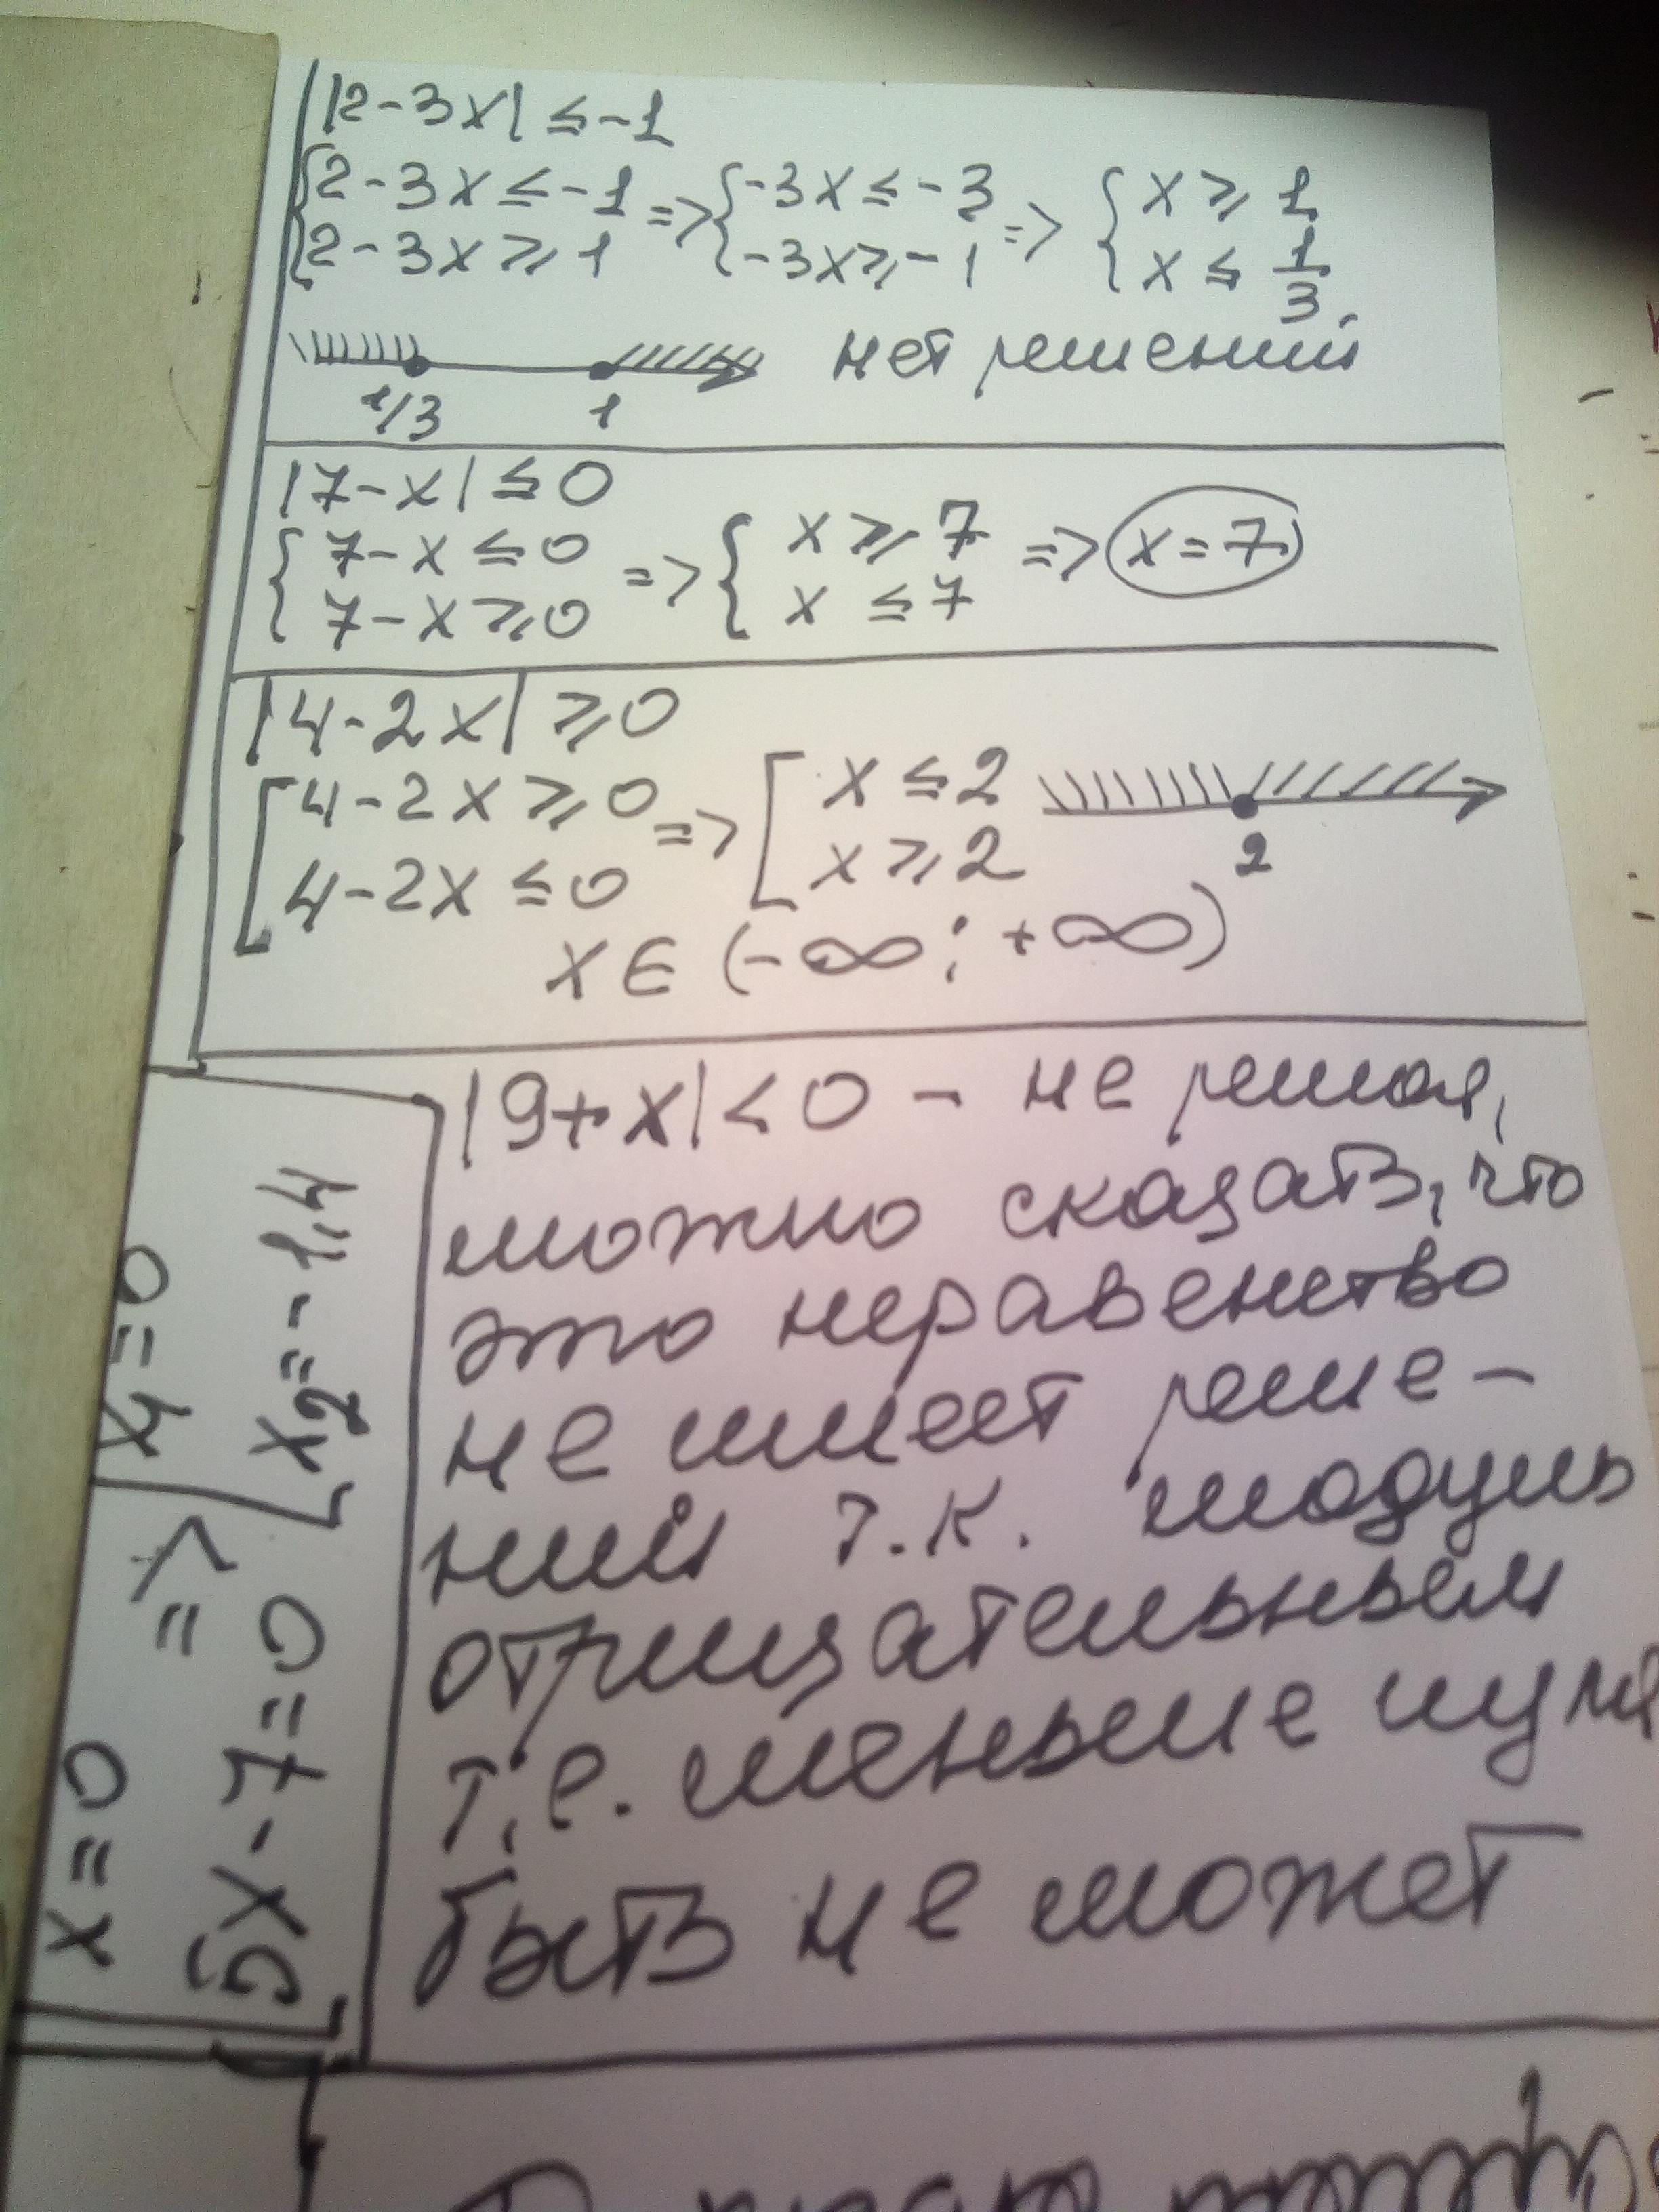 |2-3x| ≤ -1
{2-3x ≤ -1 => {-3x ≤ -3 => {x ≥ 1
{2-3x ≥ 1 {-3x ≥ -1 {x ≤ 1/3
1/3 1 нет решений
|7-x| ≤ 0
{7-x ≤ 0 => {x ≥ 7 => x=7
{7-x ≥ 0 {x ≤ 7
|4-2x| ≥ 0
[4-2x ≥ 0 => [x ≤ 2
[4-2x ≤ 0 [x ≥ 2 2
x ∈ (-∞; +∞)
|9+x| < 0 - не решая,
можно сказать, что
это неравенство
не имеет реше-
ний т.к. модуль
отрицательным
т.е. меньше нуля
быть не может
[x=0 => [x₁=0
[5x-7=0 [x₂=-1,4